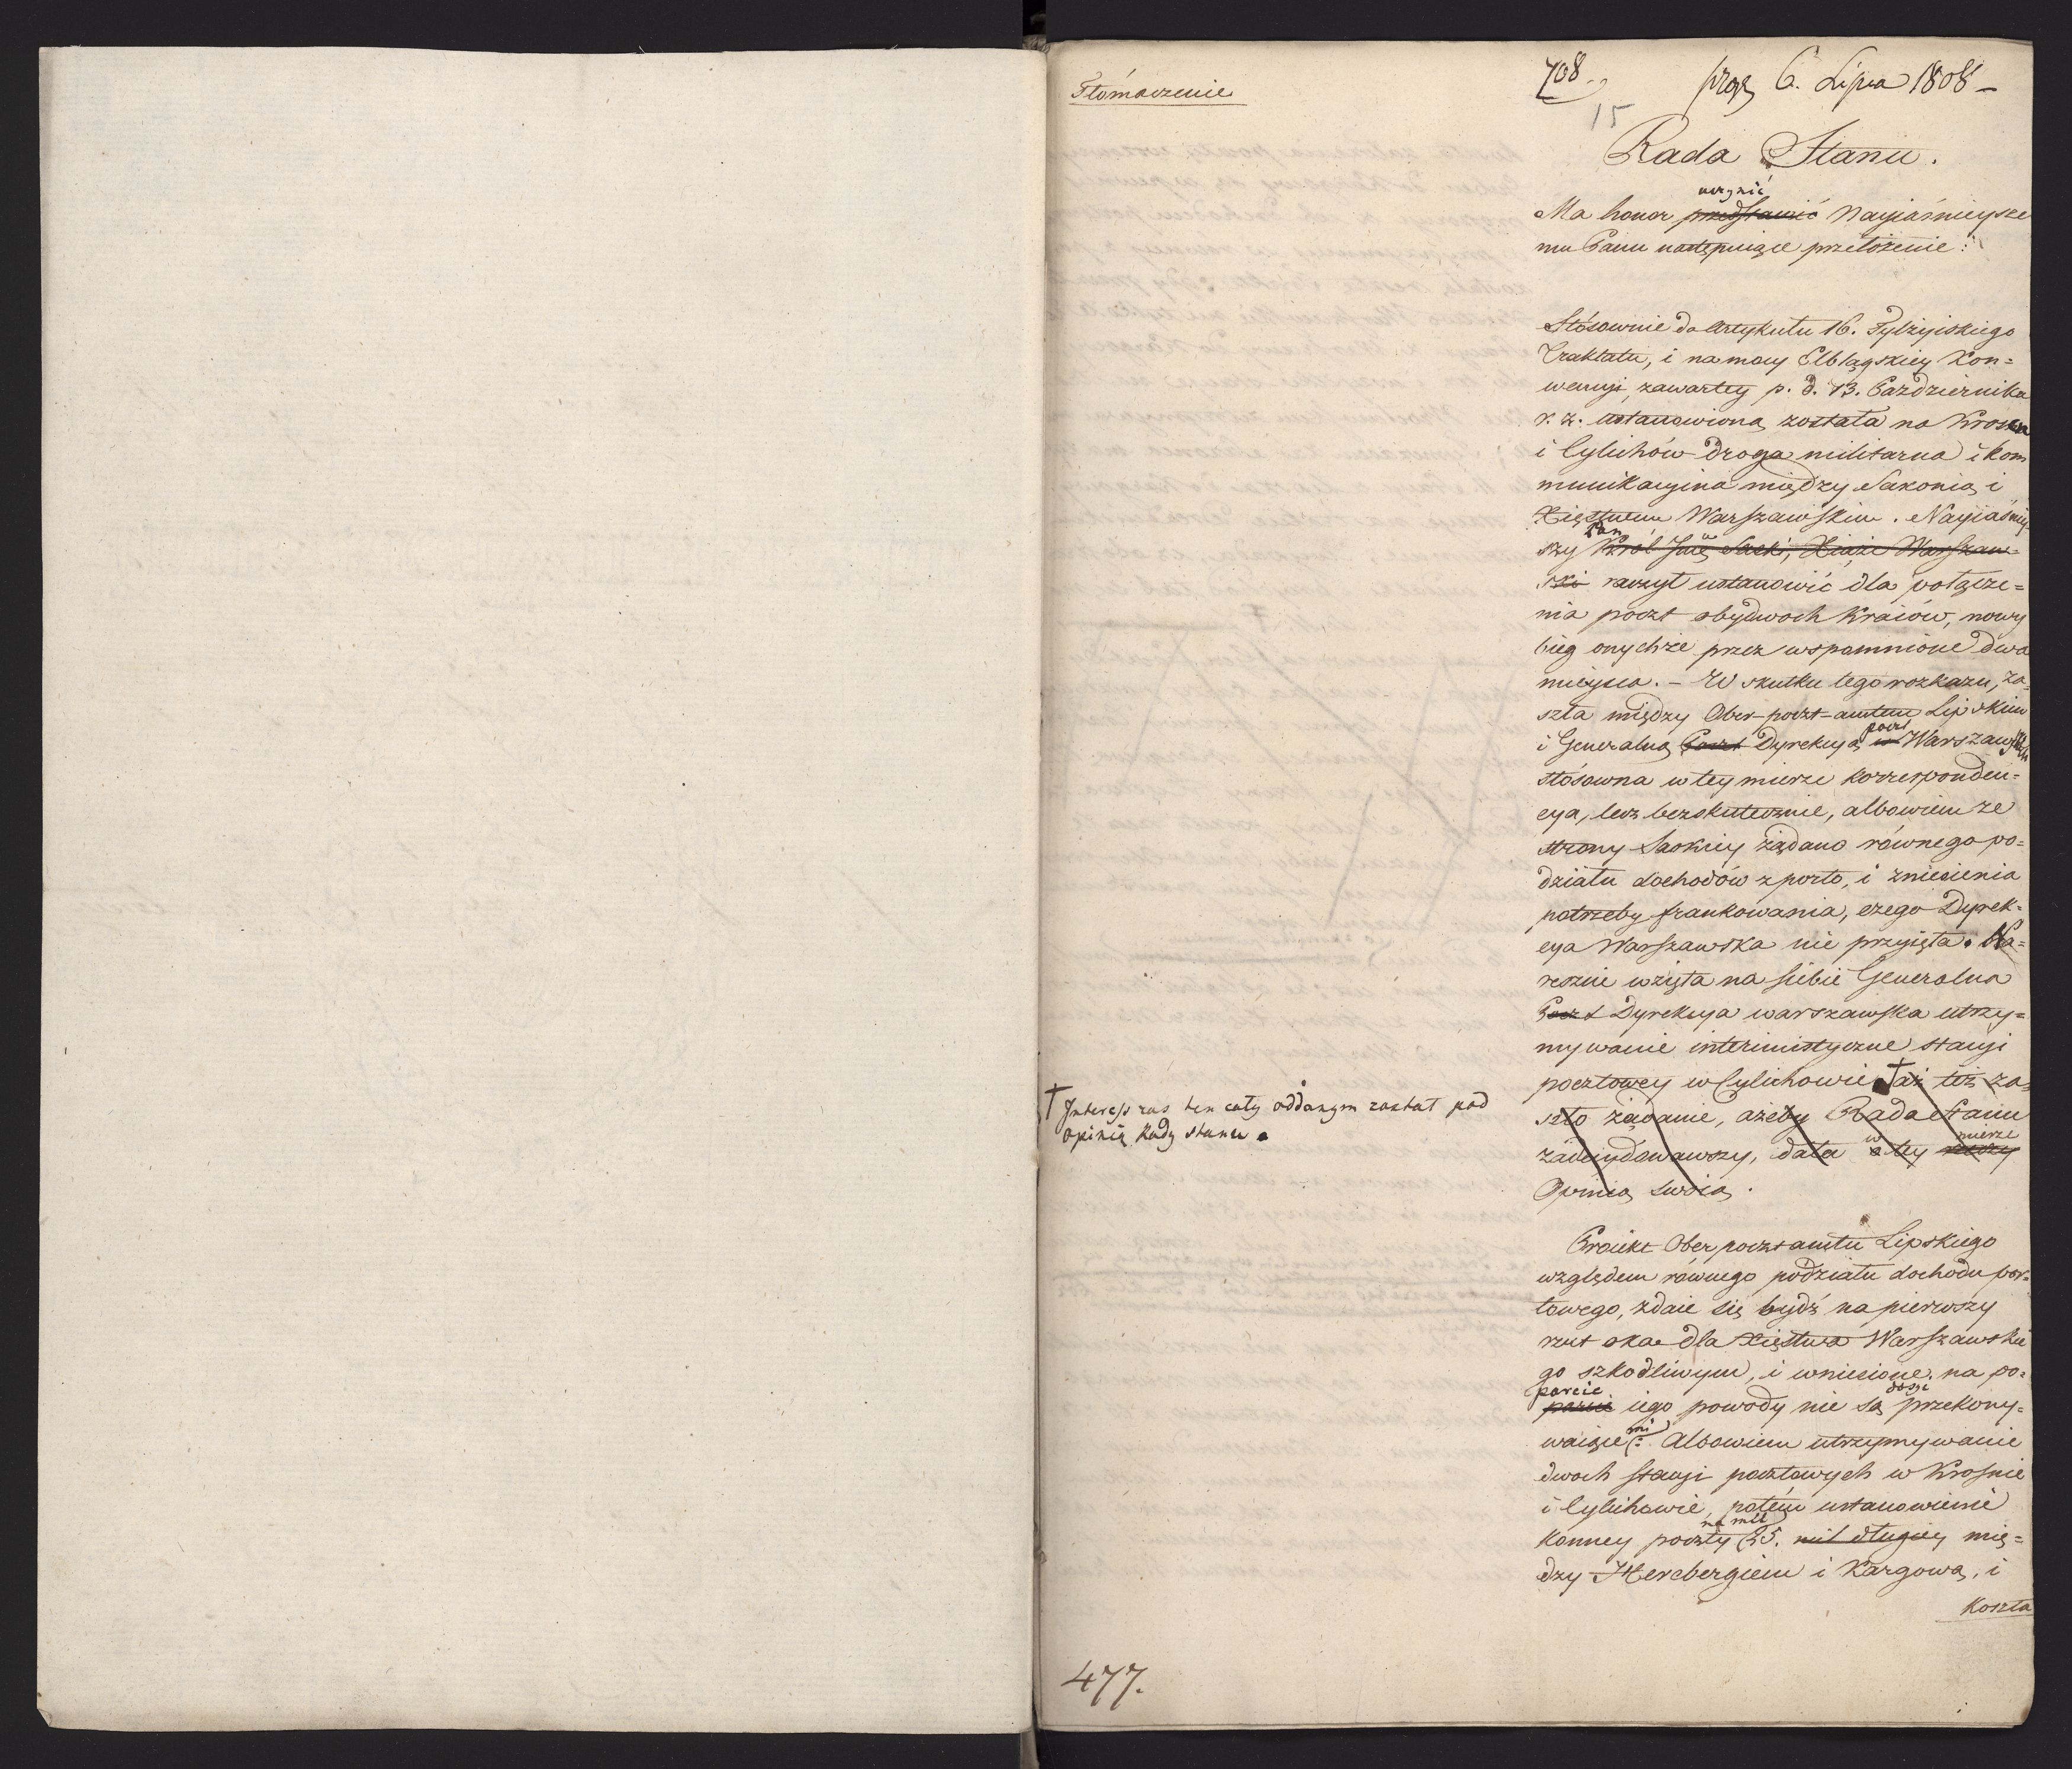 Tłómaczenie
708.
15
6. Lipca 1808
Rada Stanu.
uczynić
Ma honor przedstawić Nayiaśnieysze
mu Panu następuiące przełożenie:
Stósownie do Artykułu 16. Tylżyiskiego
Traktatu, i na mocy Elblągskiey Kon=
wencyi, zawartey p. d. 13. Października
r. z. ustanowiona została na Krosen
i Cylichów droga militarna i kom
munikacyina między Saxonią i
Xięstwem Warszawskim. Nayiaśniey
Pan
szy Król Jmć Saski, Xiąże Warszaw-
ski raczył ustanowić dla połącze=
nia poczt obydwoch Kraiów, nowy
bieg onychże przez wspomnione dwa
mieysca. - W skutku tego rozkazu, za=
szła między Ober-poczt-amtem Lipskim
poczt
i Generalną Poczt Dyrekcyą w Warszawską
stósowna w tey mierze korresponden=
cya, lecz bezskutecznie, albowiem ze
strony Saskiey żądano równego po=
działu dochodów z porto, i zniesienia
potrzeby frankowania, czego Dyrek=
cya Warszawska nie przyięła. Na=
reszcie wzięła na siebie Generalna
Poczt Dyrekcya warszawska utrzy=
mywanie interimistyczne stacyi
pocztowey w Cylichowie. † też za=
szło żądanie, ażeby Rada Stanu
w mierze
zadecydowawszy, dała o tey rzeczy
Opinią swoią.
† Interess zas ten cały oddanym został pod
opinią Rady stanu.
Proiekt Ober pocztamtu Lipskiego
względem równego podziału dochodu por=
towego, zdaie się bydź na pierwszy
rzut oka dla Xięstwa Warszawskie
go szkodliwym, i wniesione na po=
parcie dosyć
parcie iego powody nie są przekony=
mi
waiące: Albowiem utrzymywanie
dwoch stacyi pocztowych w Krosnie
i Cylichowie, potém ustanowienie
na mil
konney poczty 25. mil długiey mię=
dzy Hercbergiem i Kargową, i
Koszta
477.